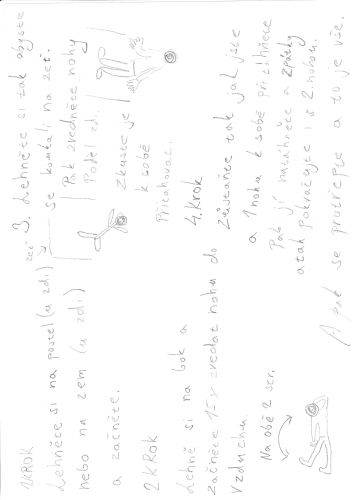 1. KROK
Lehněte si na postel (u zdi)
nebo na zem (u zdi)
a začněte.
2 KROK
Lehně si na bok a
začněte 15x zvedat nohu do
vzduchu.
Na obě 2 str.
3. Lehněte si tak abyste
se koukali na zeď.
zeď
Pak zvedněte nohy
Podél zdi.
Zkuste je
k sobě
Přitahovac.
4. Krok
Zůstaňte tak jak jste
a 1 nohu k sobě přitáhnete
Pak jí natáhněte a zpátky
a tak pokračujte i s 2. nohou.
A pak se protřepte a to je vše.